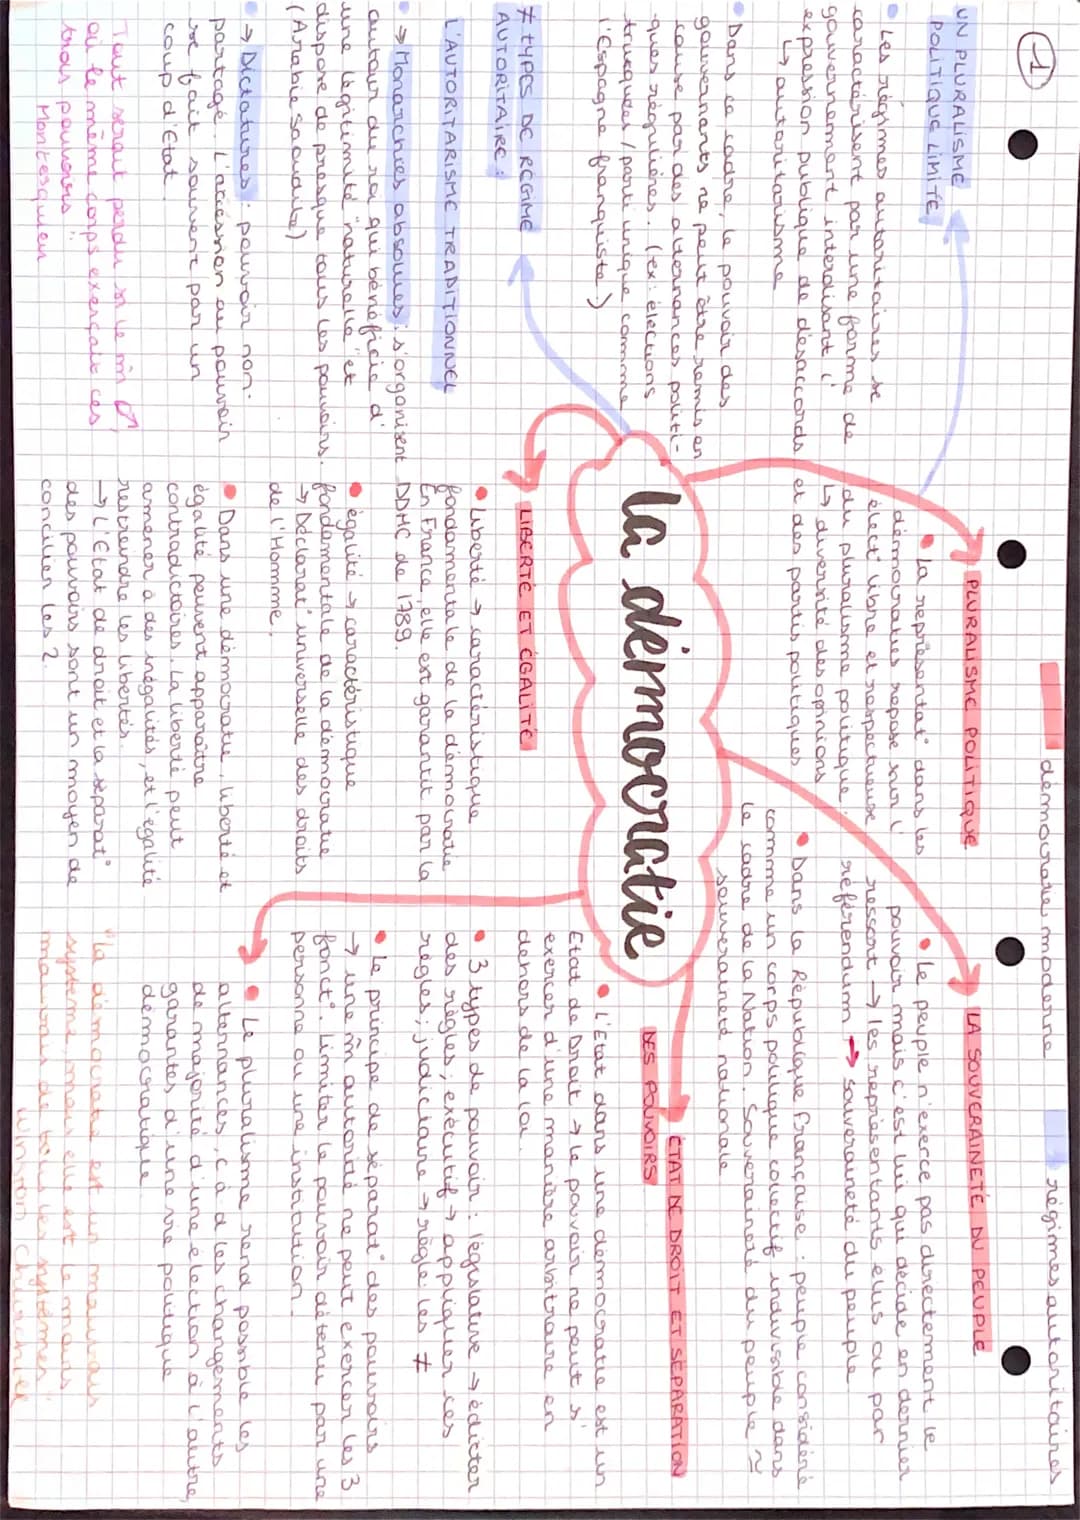 1
démocratie moderne
régimes autoritaires
UN PLURALISME
POLITIQUE LIMITÉ
• Les régimes autoritaires se
caractérisent par une forme de
gouvernement interdisant l'
expression publique de désaccords
↳ autoritarisme
• Dans ce cadre, le pouvoir des
gouvernants ne peut être remis en
cause par des alternances politi-
ques régulières. (ex: élections
truquées / parti unique comme
l'Espagne franquiste)
≠ TYPES DE RÉGIME
AUTORITAIRE :
L'AUTORITARISME TRADITIONNEL
• → Monarchies absolues : s'organisent
autour du roi qui bénéficie d'
une légitimité "naturelle" et
dispose de presque tous les pouvoirs.
(Arabie saoudite)
• → Dictatures : pouvoir non-
partagé. L'accession au pouvoir
se fait souvent par un
coup d'État.
Tout serait perdu si le m̂ ♂,
où le même corps exerçait ces
trois pouvoirs"
Montesquieu
la démocratie
PLURALISME POLITIQUE
• La représentat° dans les
démocraties repose sur l'
élect° libre et respectueuse
du pluralisme politique.
↳ diversité des opinions
et des partis politiques
LA SOUVERAINETÉ DU PEUPLE
• Le peuple n'exerce pas directement le
pouvoir mais c'est lui qui décide en dernier
ressort → les représentants élus ou par
référendum → souveraineté du peuple.
• Dans la République Française : peuple considéré
comme un corps politique collectif indivisible dans
le cadre de la Nation. Souveraineté du peuple ≃
souveraineté nationale
ÉTAT DE DROIT ET SÉPARATION
DES POUVOIRS
• L'État dans une démocratie est un
État de Droit → le pouvoir ne peut s'
exercer d'une manière arbitraire en
dehors de la loi.
• 3 types de pouvoir : législative → édicter
des règles ; exécutif → appliquer ces
règles ; judiciaire → règle les ≠
• Le principe de séparat° des pouvoirs
→ une m̂ autorité ne peut exercer les 3
fonct°. Limiter le pouvoir détenu par une
personne ou une institution.
LIBERTÉ ET ÉGALITÉ
• Liberté → caractéristique
fondamentale de la démocratie
En France, elle est garantit par la
DDHC de 1789.
• égalité → caractéristique
fondamentale de la démocratie
→ Déclarat° universelle des droits
de l'Homme.
• Dans une démocratie, liberté et
égalité peuvent apparaître
contradictoires. La liberté peut
amener à des inégalités, et l'égalité
restreindre les libertés.
→ L'État de droit et la séparat°
des pouvoirs sont un moyen de
concilier les 2.
• Le pluralisme rend possible les
alternances, c à d les changements
de majorité d'une élection à l'autre,
garantes d'une vie politique
démocratique
"la démocratie est un mauvais
système, mais elle est le moins
mauvais de tous les systèmes"
Winston Churchill